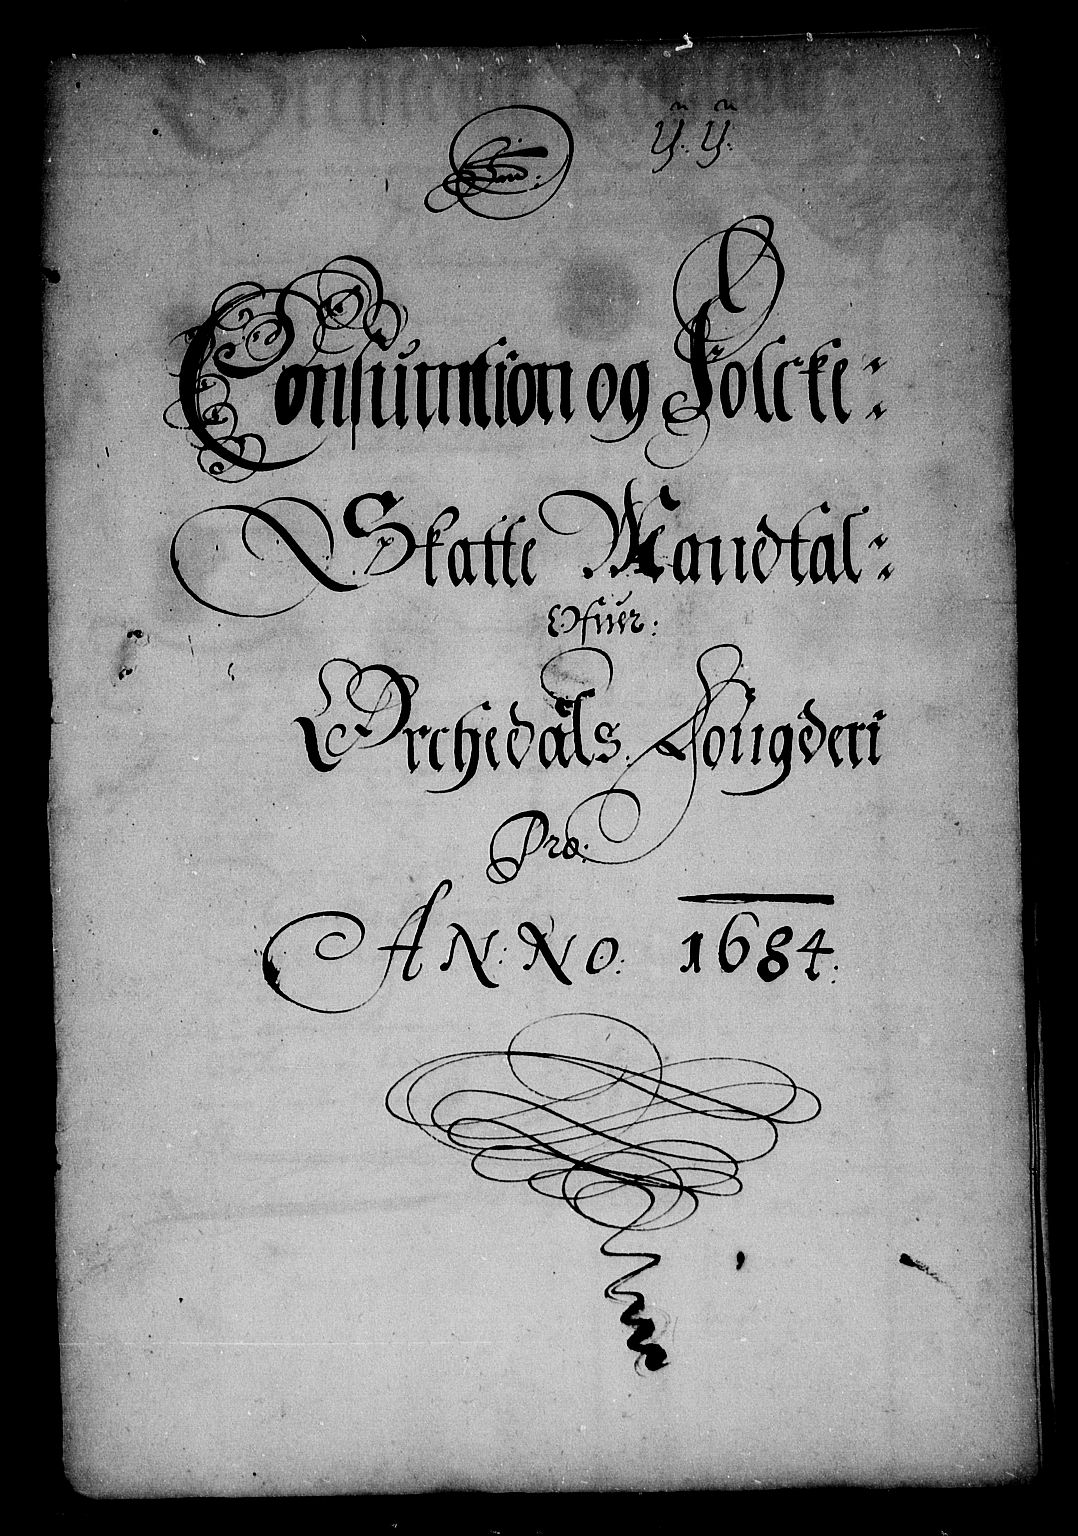 Consumtion og Folcke:
Skatte Mandtal:
Ofuer:
Orchedals Fougderi
Pro:
ANNO. 1684: